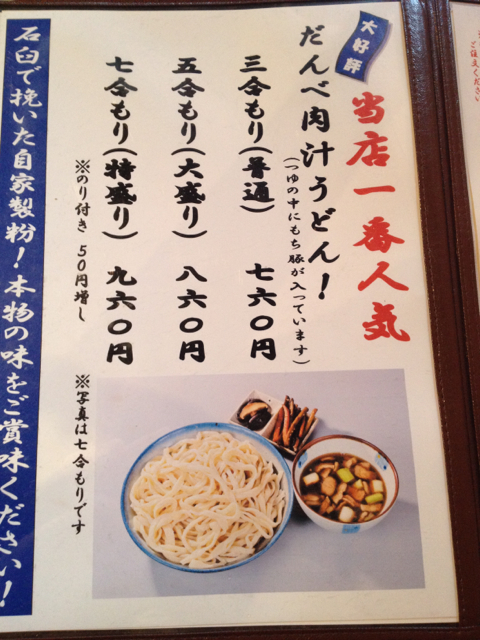 大好評
当店一番人気
だんべ肉汁うどん！
(つゆの中にもち豚が入っています)
三合もり(普通) 七六〇円
五合もり(大盛り) 八六〇円
七合もり(特盛り) 九六〇円
※のり付き 50円増し
※写真は七合もりです
石臼で挽いた自家製粉！本物の味をご賞味ください！